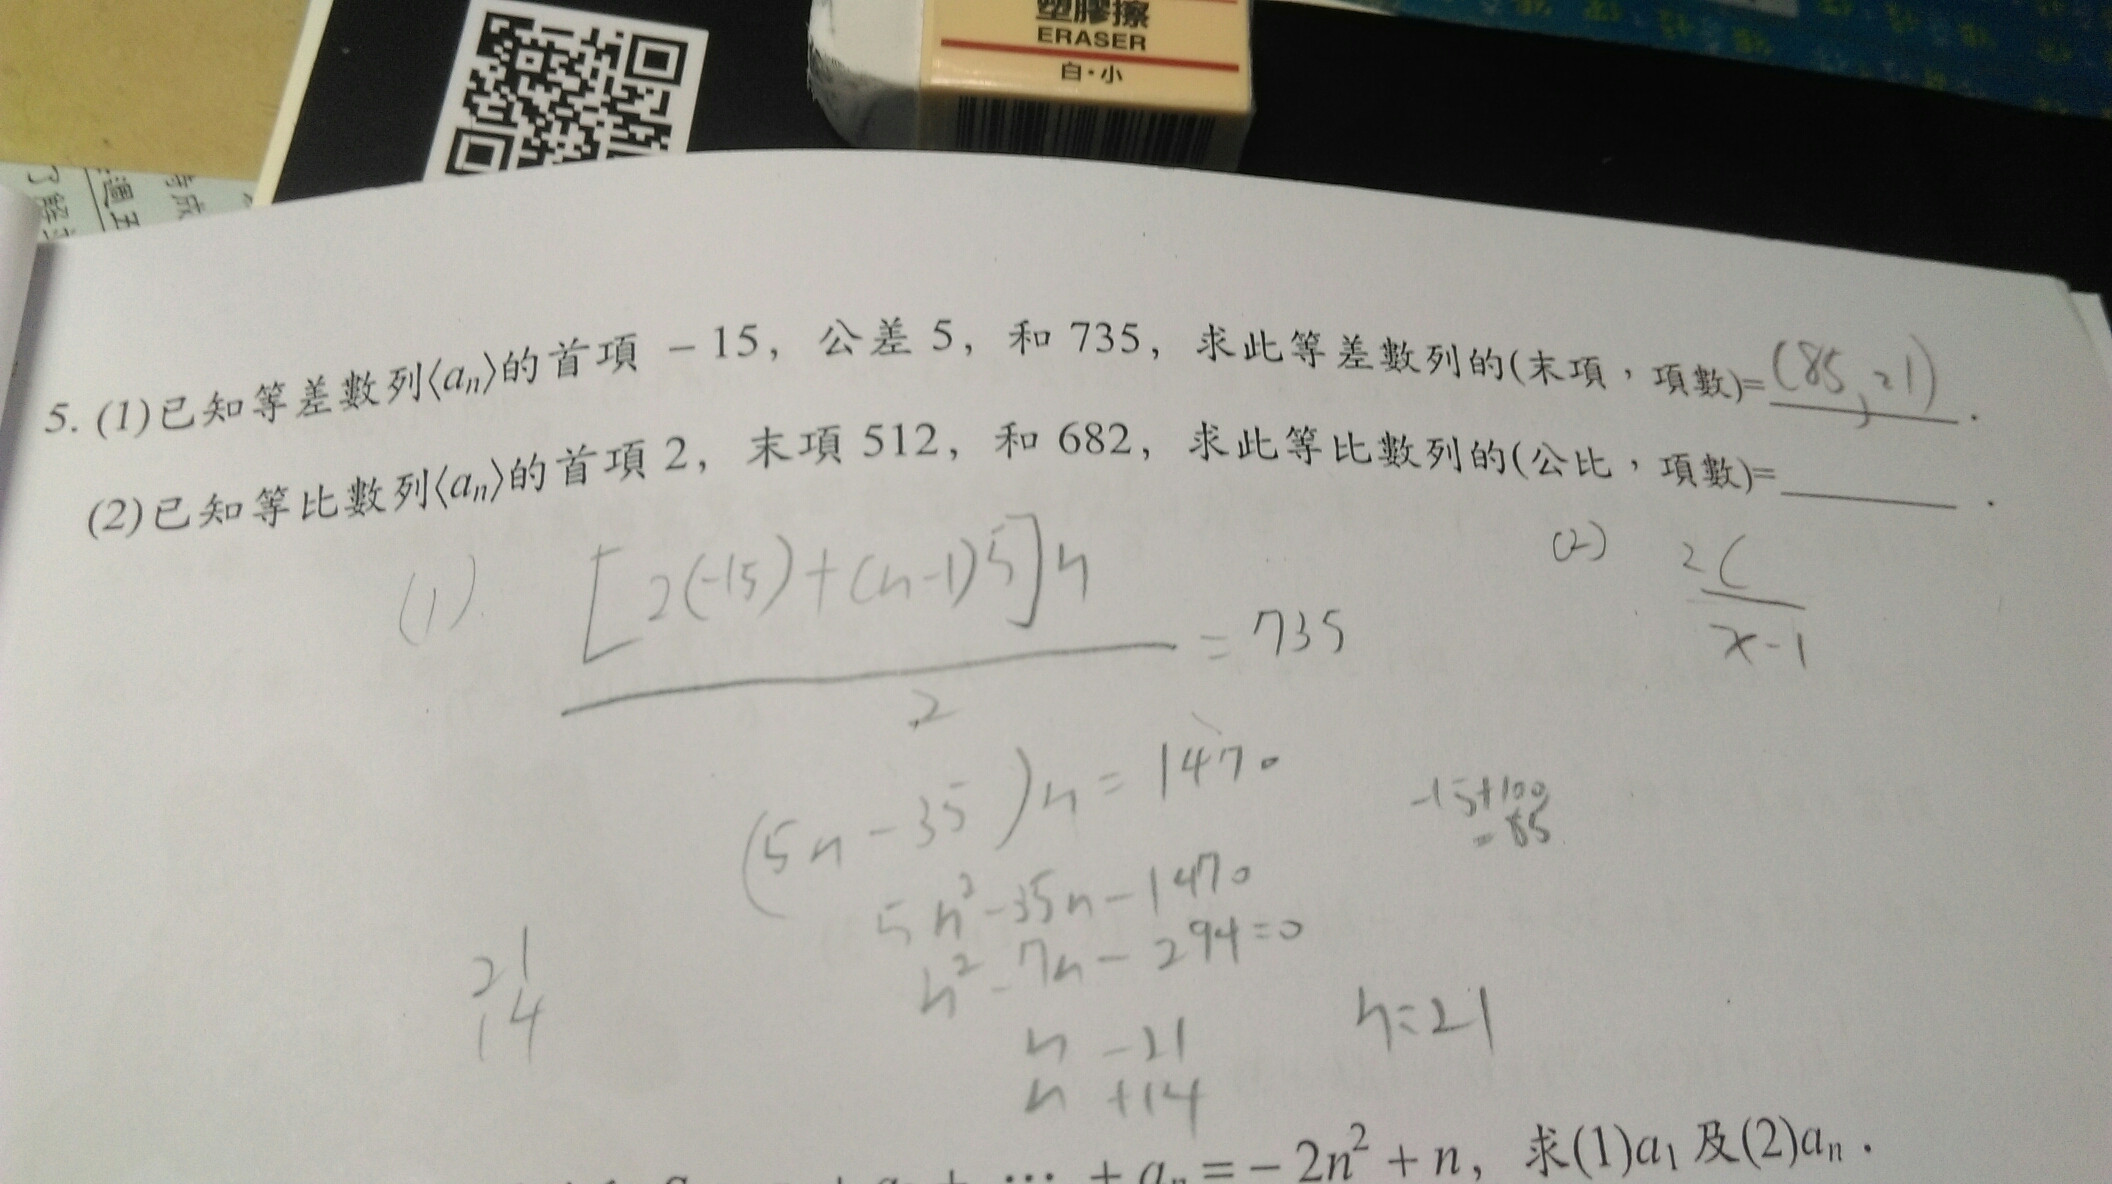 塑膠擦
ERASER
白·小
5. (1)已知等差數列⟨aₙ⟩的首項 –15，公差 5，和 735，求此等差數列的(末項，項數)=(85,21).
(2)已知等比數列⟨aₙ⟩的首項 2，末項 512，和 682，求此等比數列的(公比，項數)=______.
(1) [2(-15)+(n-1)5]n / 2 = 735
(2) 2( / x-1
(5n-35)n=1470
-15+100
=85
5n²-35n-1470
n²-7n-294=0
21
14
n -21
n +14
n=21
+ ⋯ + aₙ = –2n² + n，求(1)a₁ 及(2)aₙ.